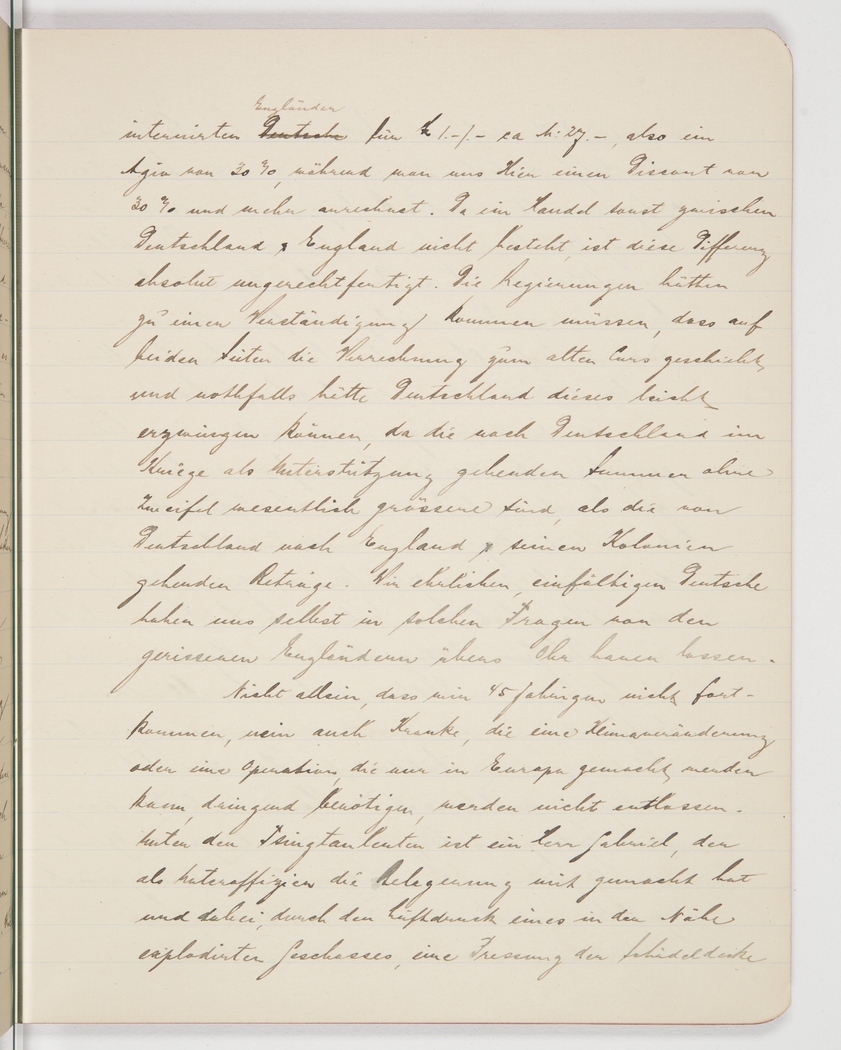 Engländer
internirten Deutsche für £ 1.-/.- ca M: 27.-, also ein
Agio von 30 %, während man uns hier einen Discont von
30 % und mehr anrechnet. Da ein Handel sonst zwischen
Deutschland & England nicht besteht, ist diese Differenz
absolut ungerechtfertigt. Die Regierungen hätten
zu einer Verständigung kommen müssen, dass auf
beiden Seiten die Verrechnung zum alten Curs geschieht,
und nothfalls hätte Deutschland dieses leicht
erzwingen können, da die nach Deutschland im
Kriege als Unterstützung gehenden Summen ohne
Zweifel wesentlich grössere sind, als die von
Deutschland nach England & seinen Kolonien
gehenden Beträge. Wir ehrlichen, einfältigen Deutsche
haben uns selbst in solchen Fragen von den
gerissenen Engländern übers Ohr hauen lassen.
Nicht allein, dass wir 45 Jahrigen nicht fort-
kommen, nein auch Kranke, die eine Klimaveränderung
oder eine Operation, die nur in Europa gemacht werden
kann, dringend benötigen, werden nicht entlassen.
Unter den Tsingtauleuten ist ein Herr Gabriel, der
als Unteroffizier die Belagerung mit gemacht hat
und dabei, durch den Luftdruck eines in der Nähe
explodirten Geschosses, eine Pressung der Schädeldecke